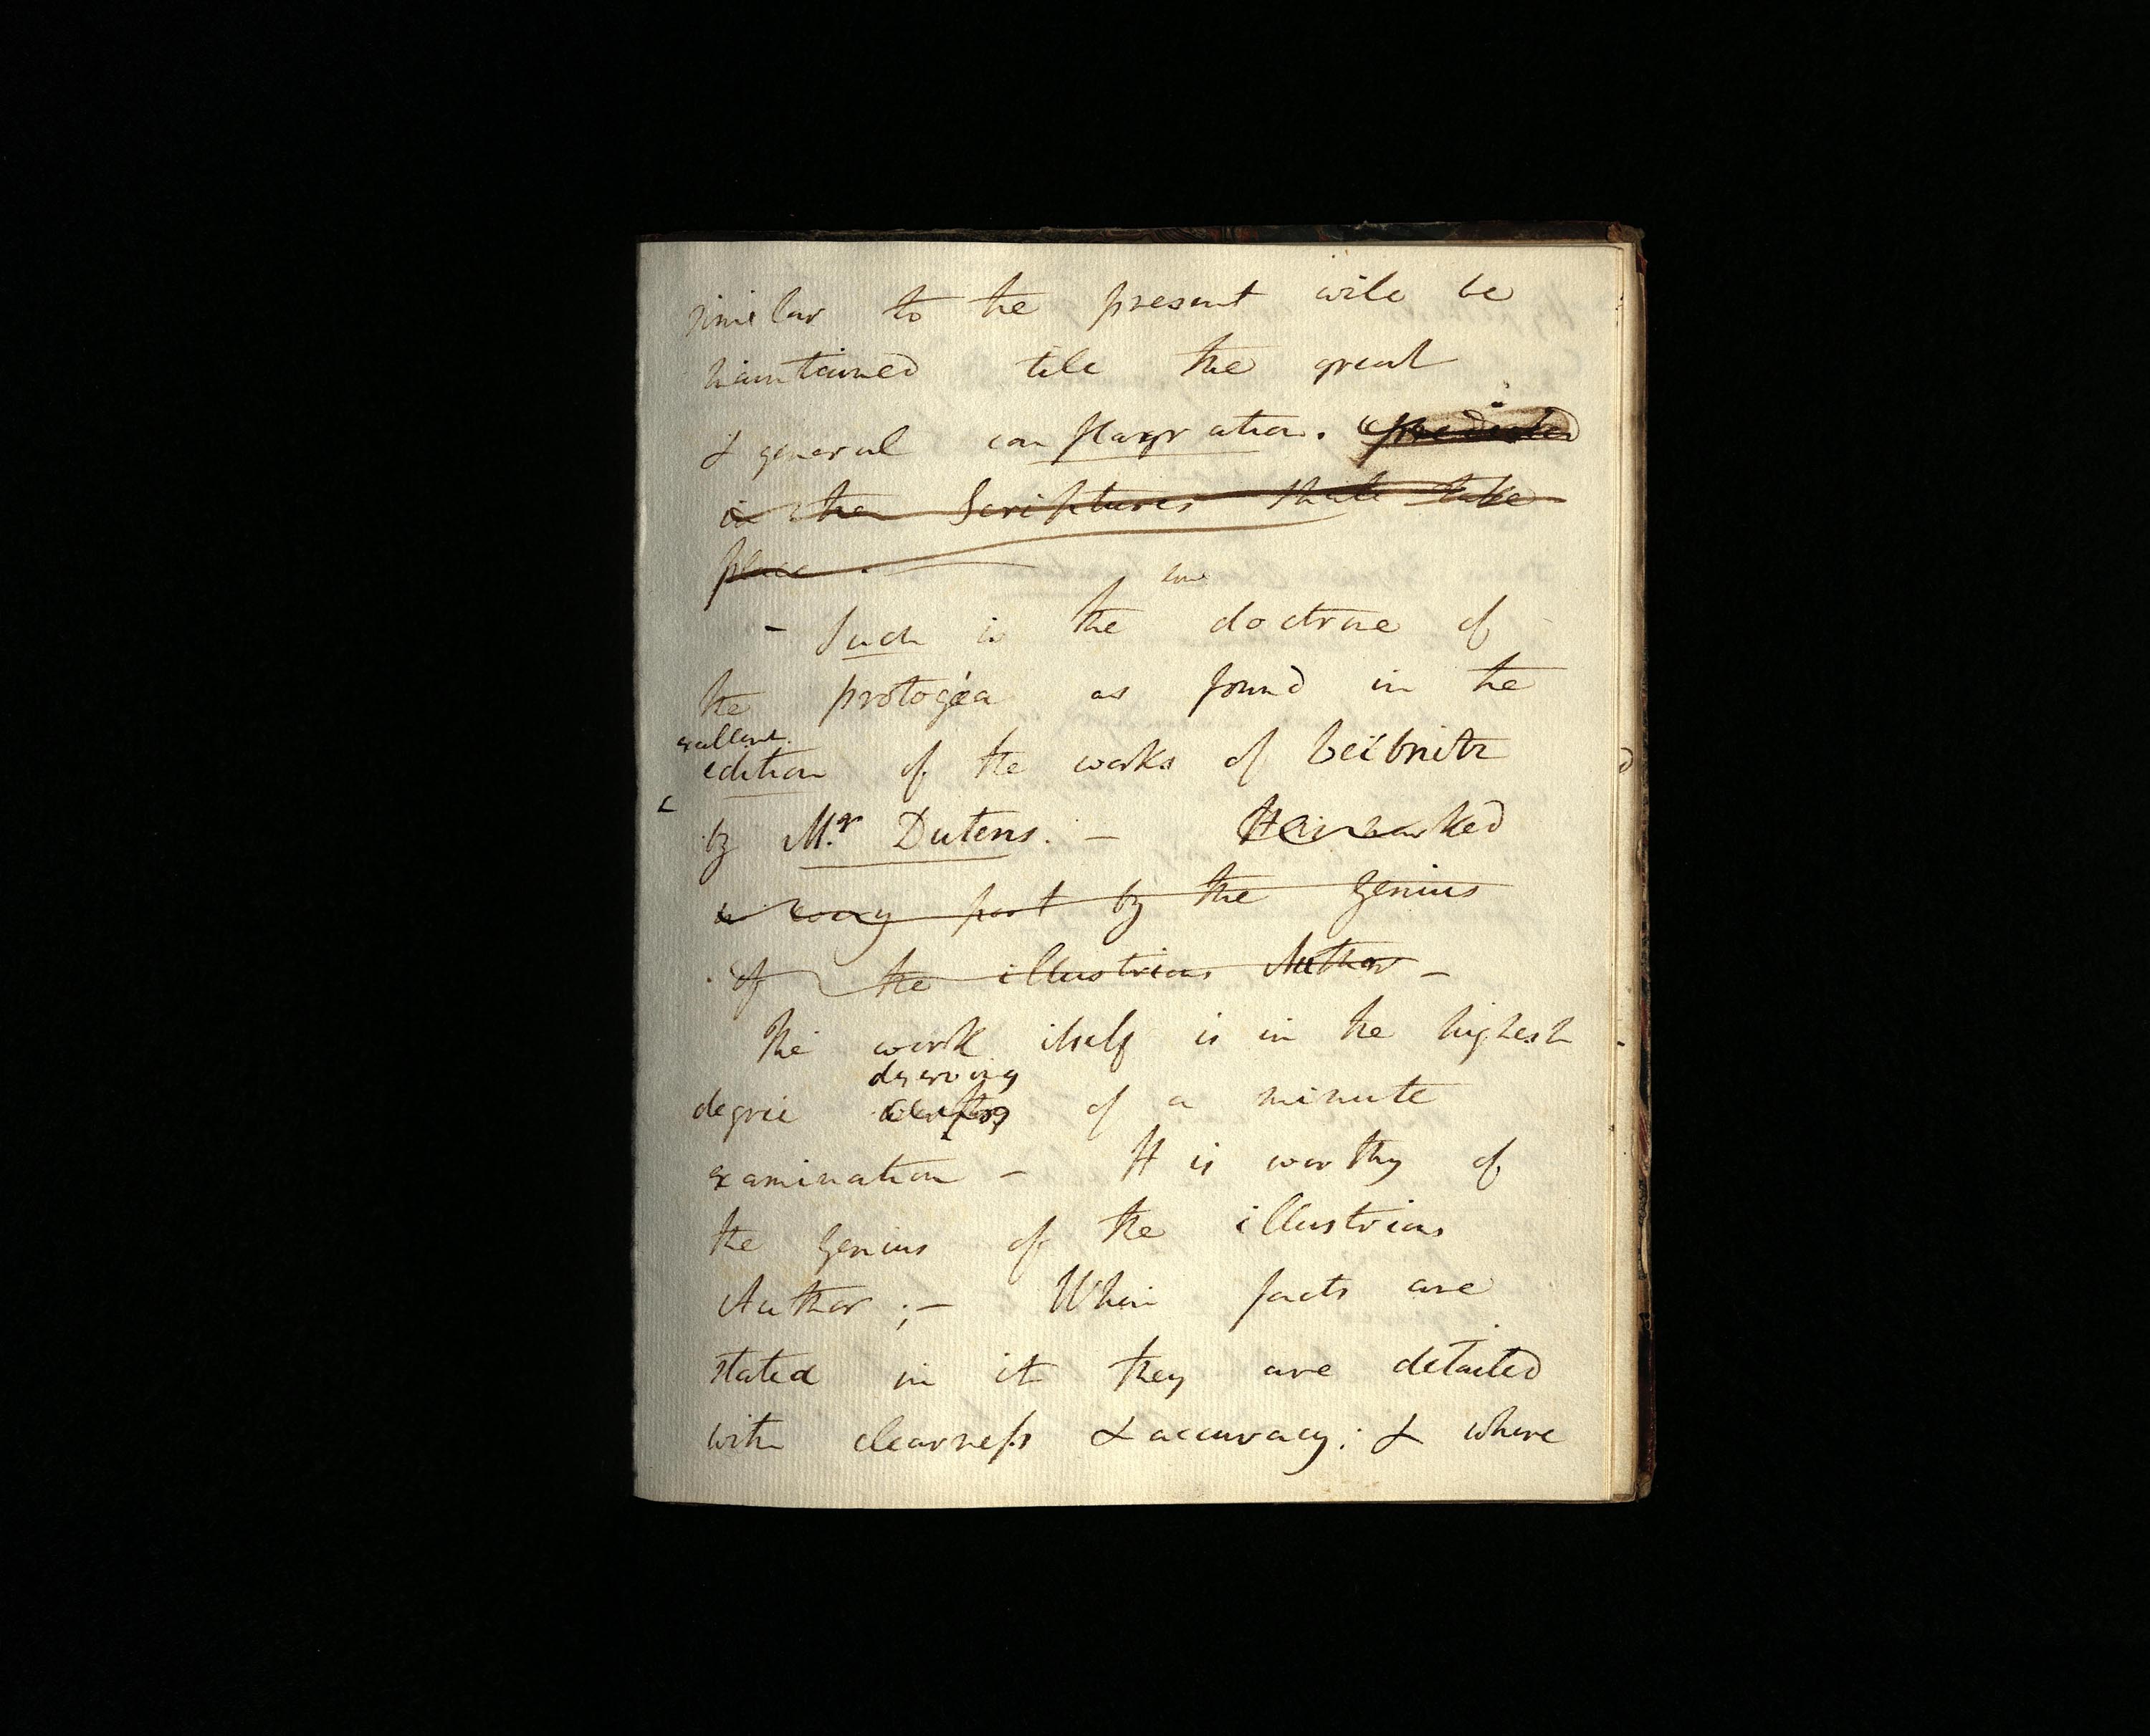 similar to the present will be
maintained till the great
& general conflagration. predicted
in the Scriptures shall take
place.
true
- Such is the doctrine of
the protogéa as found in the
excellent
edition of the works of Leibnitz
by Mr. Dutens. - marked
in every part by the Genius
of the illustrious Author -
The work itself is in the highest
deserving
degree of a minute
examination - It is worthy of
the Genius of the illustrious
Author ;- When facts are
stated in it they are detailed
with clearness & accuracy; & where